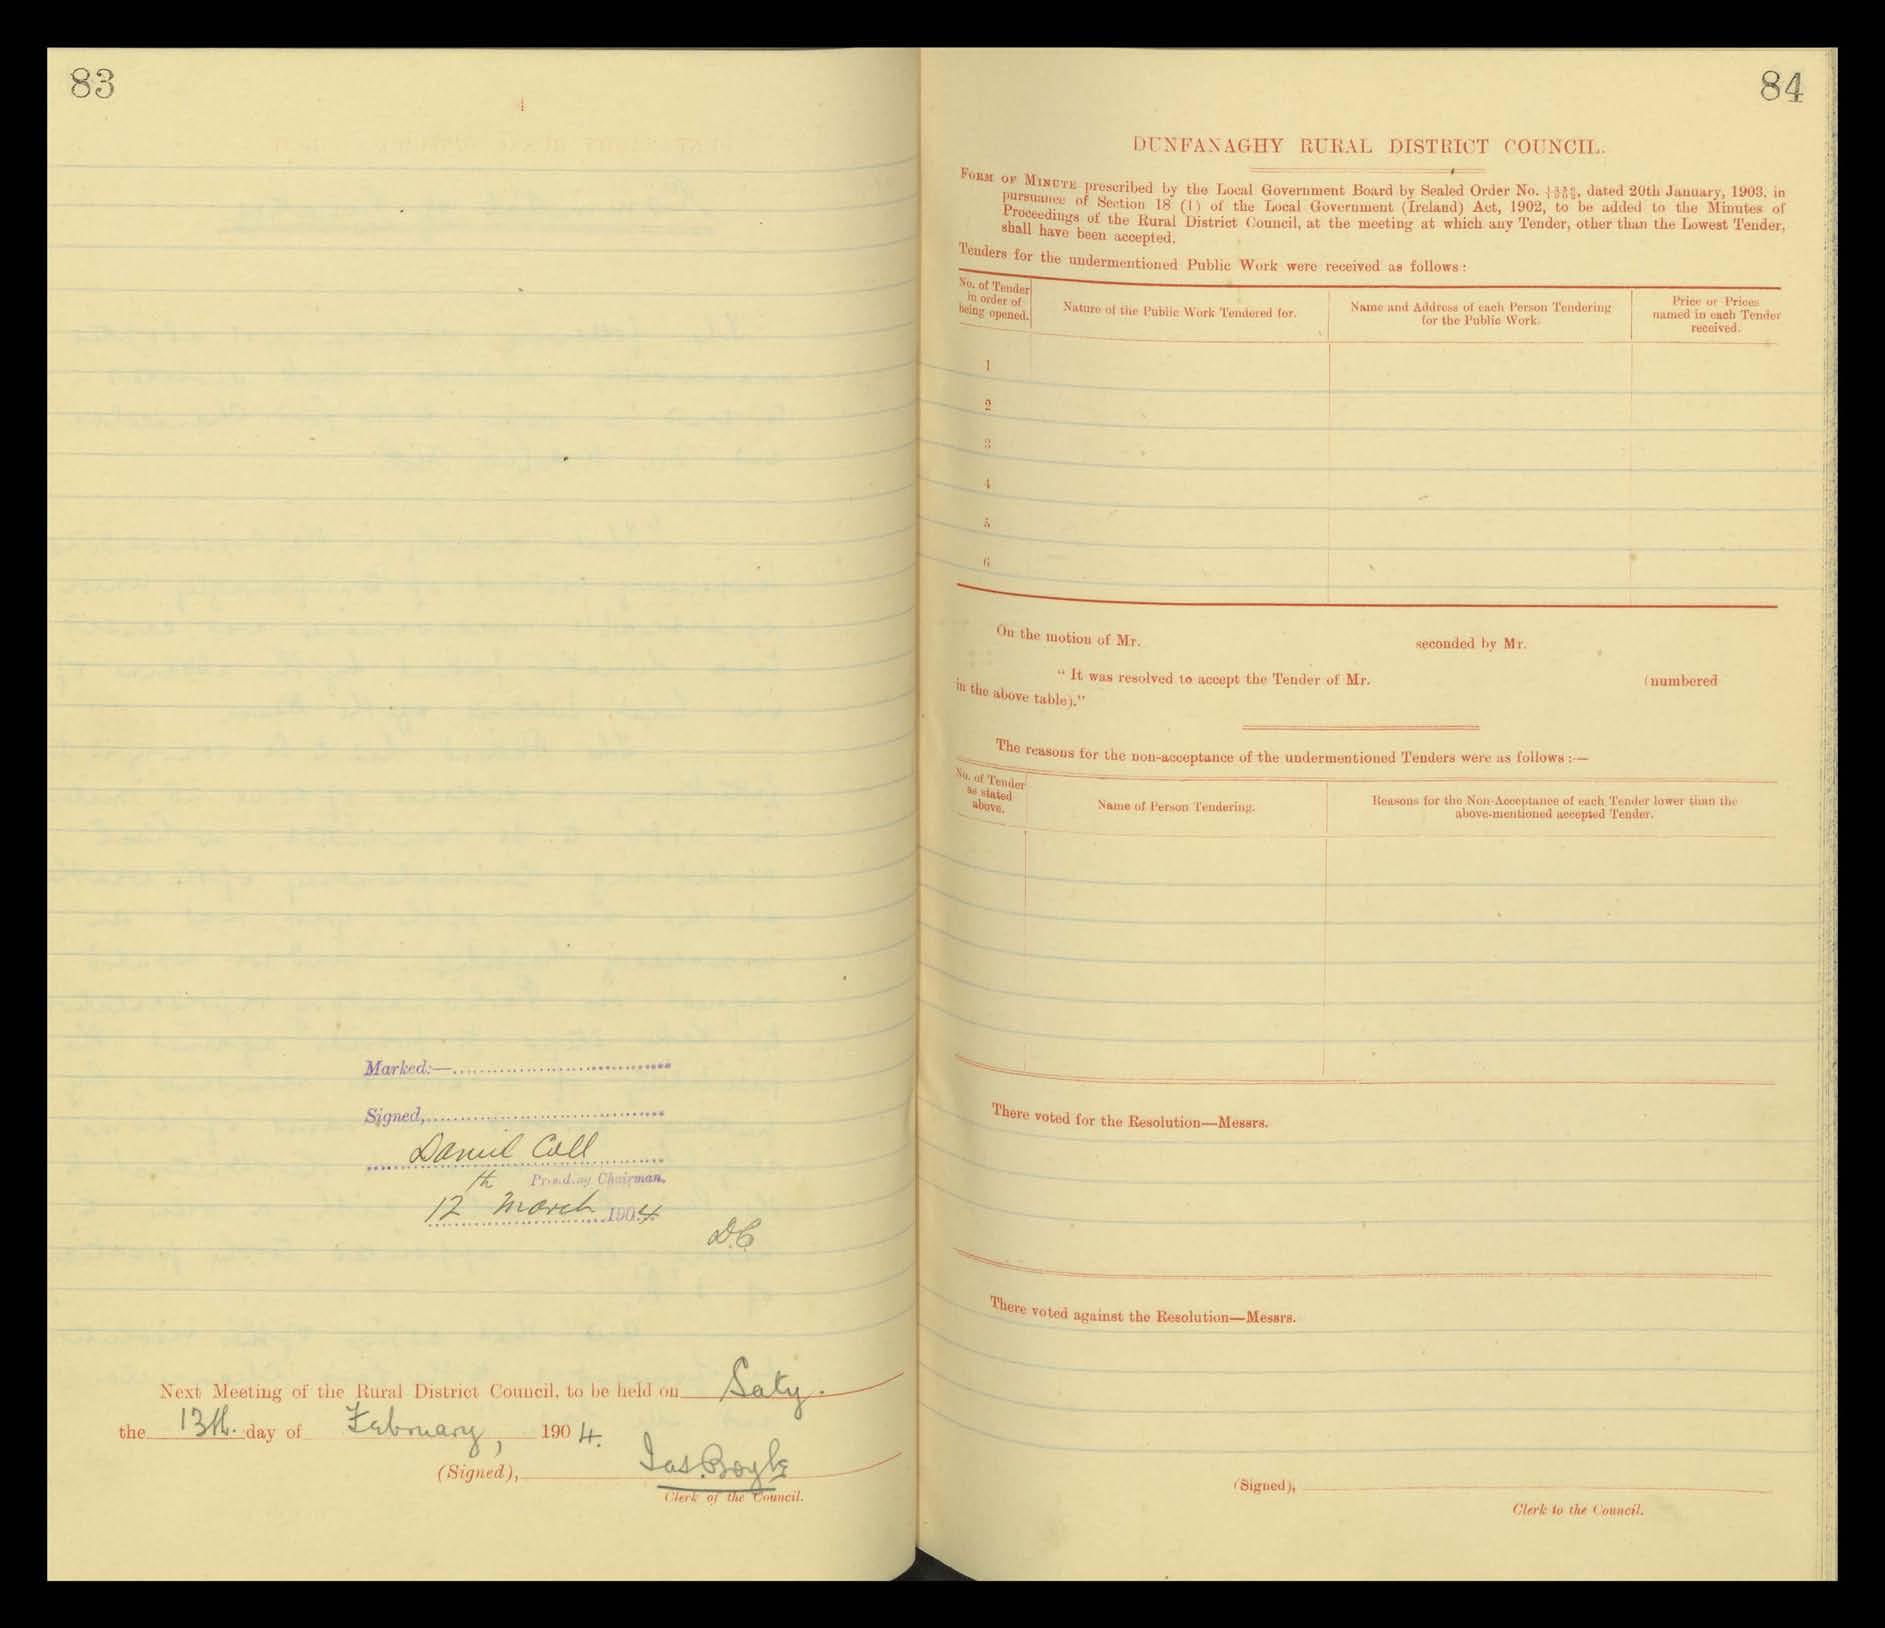 83
Marked:—
Signed,
Daniel Coll
Presiding Chairman.
12th March 1904
D.C
Next Meeting of the Rural District Council, to be held on Saty.
the 13th. day of February, 1904.
(Signed), Jas. Boyle
Clerk of the Council.
84
DUNFANAGHY RURAL DISTRICT COUNCIL.
FORM OF MINUTE prescribed by the Local Government Board by Sealed Order No. , dated 20th January, 1903, in
pursuance of Section 18 (1) of the Local Government (Ireland) Act, 1902, to be added to the Minutes of
Proceedings of the Rural District Council, at the meeting at which any Tender, other than the Lowest Tender,
shall have been accepted.
Tenders for the undermentioned Public Work were received as follows:
No. of Tender
in order of
being opened.
Nature of the Public Work Tendered for.
Name and Address of each Person Tendering
for the Public Work.
Price or Prices
named in each Tender
received.
1
2
3
4
5
6
On the motion of Mr. seconded by Mr.
“ It was resolved to accept the Tender of Mr. (numbered
in the above table).”
The reasons for the non-acceptance of the undermentioned Tenders were as follows:—
No. of Tender
as stated
above.
Name of Person Tendering.
Reasons for the Non-Acceptance of each Tender lower than the
above-mentioned accepted Tender.
There voted for the Resolution—Messrs.
There voted against the Resolution—Messrs.
(Signed),
Clerk to the Council.